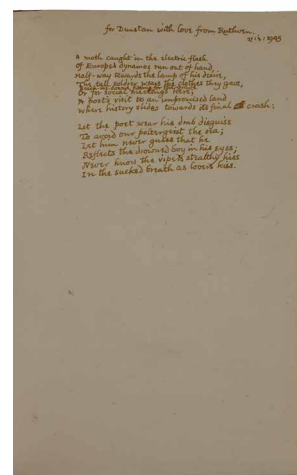 for Dunstan with love from Ruthven.
1945
A moth caught in the electric flash
Of Europe's dynamos run out of hand,
Half-way towards the lamp of his desire,
The tall soldier wears the clothes they gave,
Or for social meetings
A poet's visit to an unpromised land
Where history slides towards its final crash;
Let the poet wear his dumb disguise
To avoid our poltergeist the era;
Let him never guess that he
Reflects the drowned boy in his eyes;
Never know the viper's stealthy hiss
In the sucked breath as lovers kiss.